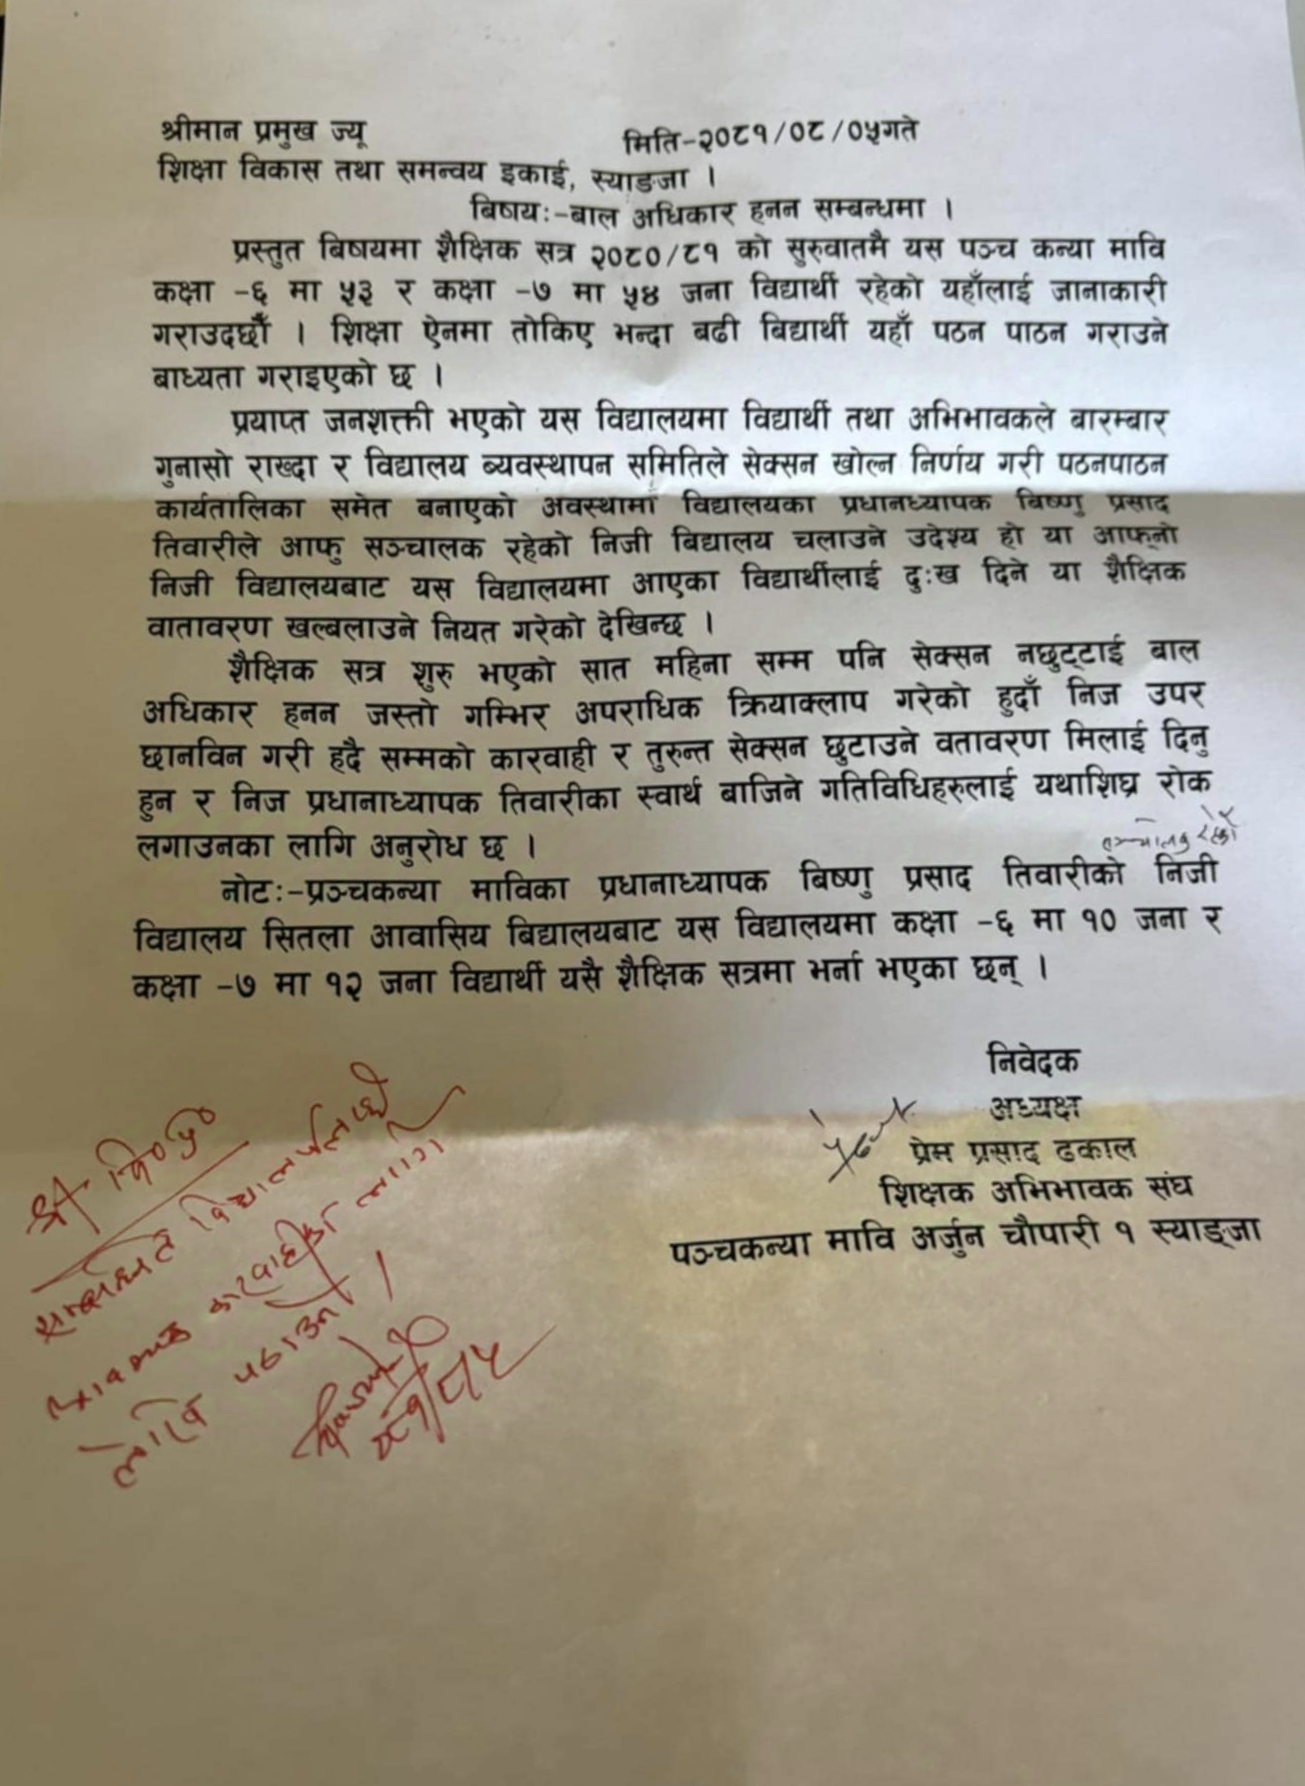 श्रीमान प्रमुख ज्यू मिति-२०८१/०८/०५गते
शिक्षा विकास तथा समन्वय इकाई, स्याङजा ।
बिषयः-बाल अधिकार हनन सम्बन्धमा ।
प्रस्तुत बिषयमा शैक्षिक सत्र २०८०/८१ को सुरुवातमै यस पञ्च कन्या मावि
कक्षा -६ मा ५३ र कक्षा -७ मा ५४ जना विद्यार्थी रहेको यहाँलाई जानाकारी
गराउदछौँ । शिक्षा ऐनमा तोकिए भन्दा बढी बिद्यार्थी यहाँ पठन पाठन गराउने
बाध्यता गराइएको छ ।
प्रयाप्त जनशक्ती भएको यस विद्यालयमा विद्यार्थी तथा अभिभावकले बारम्बार
गुनासो राख्दा र विद्यालय ब्यवस्थापन समितिले सेक्सन खोल्न निर्णय गरी पठनपाठन
कार्यतालिका समेत बनाएको अवस्थामा विद्यालयका प्रधानध्यापक बिष्णु प्रसाद
तिवारीले आफु सञ्चालक रहेको निजी बिद्यालय चलाउने उदेश्य हो या आफ्‌नो
निजी विद्यालयबाट यस विद्यालयमा आएका विद्यार्थीलाई दुःख दिने या शैक्षिक
वातावरण खल्बलाउने नियत गरेको देखिन्छ ।
शैक्षिक सत्र शुरु भएको सात महिना सम्म पनि सेक्सन नछुट्‌टाई बाल
अधिकार हनन जस्तो गम्भिर अपराधिक क्रियाक्लाप गरेको हुदाँ निज उपर
छानविन गरी हदै सम्मको कारवाही र तुरुन्त सेक्सन छुटाउने वतावरण मिलाई दिनु
हुन र निज प्रधानाध्यापक तिवारीका स्वार्थ बाजिने गतिविधिहरुलाई यथाशिघ्र रोक
लगाउनका लागि अनुरोध छ ।
रहेको
नोटः-प्रञ्चकन्या माविका प्रधानाध्यापक बिष्णु प्रसाद तिवारीको निजी
विद्यालय सितला आवासिय बिद्यालयबाट यस विद्यालयमा कक्षा -६ मा १० जना र
कक्षा -७ मा १२ जना विद्यार्थी यसै शैक्षिक सत्रमा भर्ना भएका छन् ।
निवेदक
अध्यक्ष
प्रेम प्रसाद ढकाल
शिक्षक अभिभावक संघ
पञ्चकन्या मावि अर्जुन चौपारी १ स्याङ्‌जा
सम्बन्धित
आवश्यक कारवाहीका लागि
लेखि पठाउने ।